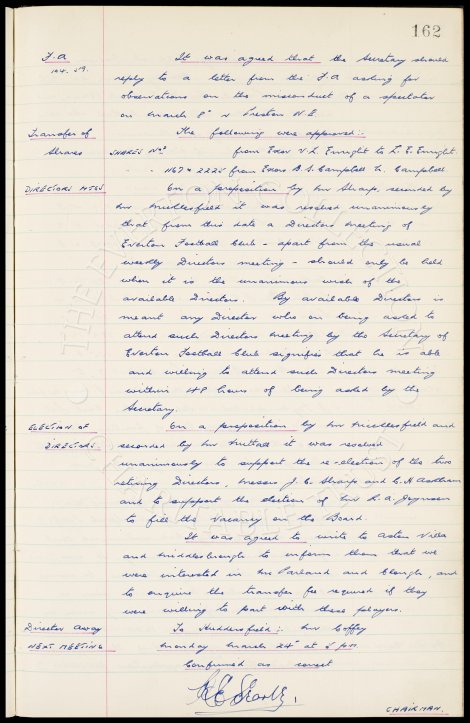 162
F.A It was agreed that the Secretary should
reply to a letter from the F.A asking for
observations on the misconduct of a spectator
on March 8th v Preston N.E
Transfer of The following were approved :-
Shares SHARES Nos from Exor V.L. Enright to L.E. Enright
1167 & 2225 from Exors B.S. Campbell Campbell
DIRECTORS MTGS On a proposition by Mr Sharp, seconded by
Mr Micklesfield it was resolved unanimously
that from this date a Directors meeting of
Everton Football Club - apart from the usual
weekly Directors meeting - should only be held
when it is the unanimous wish of the
available Directors. By available Directors is
meant any Director who on being asked to
attend such Directors meeting by the Secretary of
Everton Football Club signifies that he is able
and willing to attend such Directors meeting
within 48 hours of being asked by the
Secretary.
ELECTION OF On a proposition by Mr Micklesfield and
DIRECTORS seconded by Mr Nuttall it was resolved
unanimously to support the re-election of the two
retiring Directors, Messrs J.C. Sharp and C.H Askham
and to support the election of Mr R.A. Joynson
to fill the vacancy on the Board.
It was agreed to write to Aston Villa
and Middlesbrough to inform them that we
were interested in Mr Parland and Clough, and
to enquire the transfer fee required if they
were willing to part with these players.
Director Away To Huddersfield :- Mr Coffey
NEXT MEETING Monday March 24th at 5 pm
Confirmed as correct
CHAIRMAN.